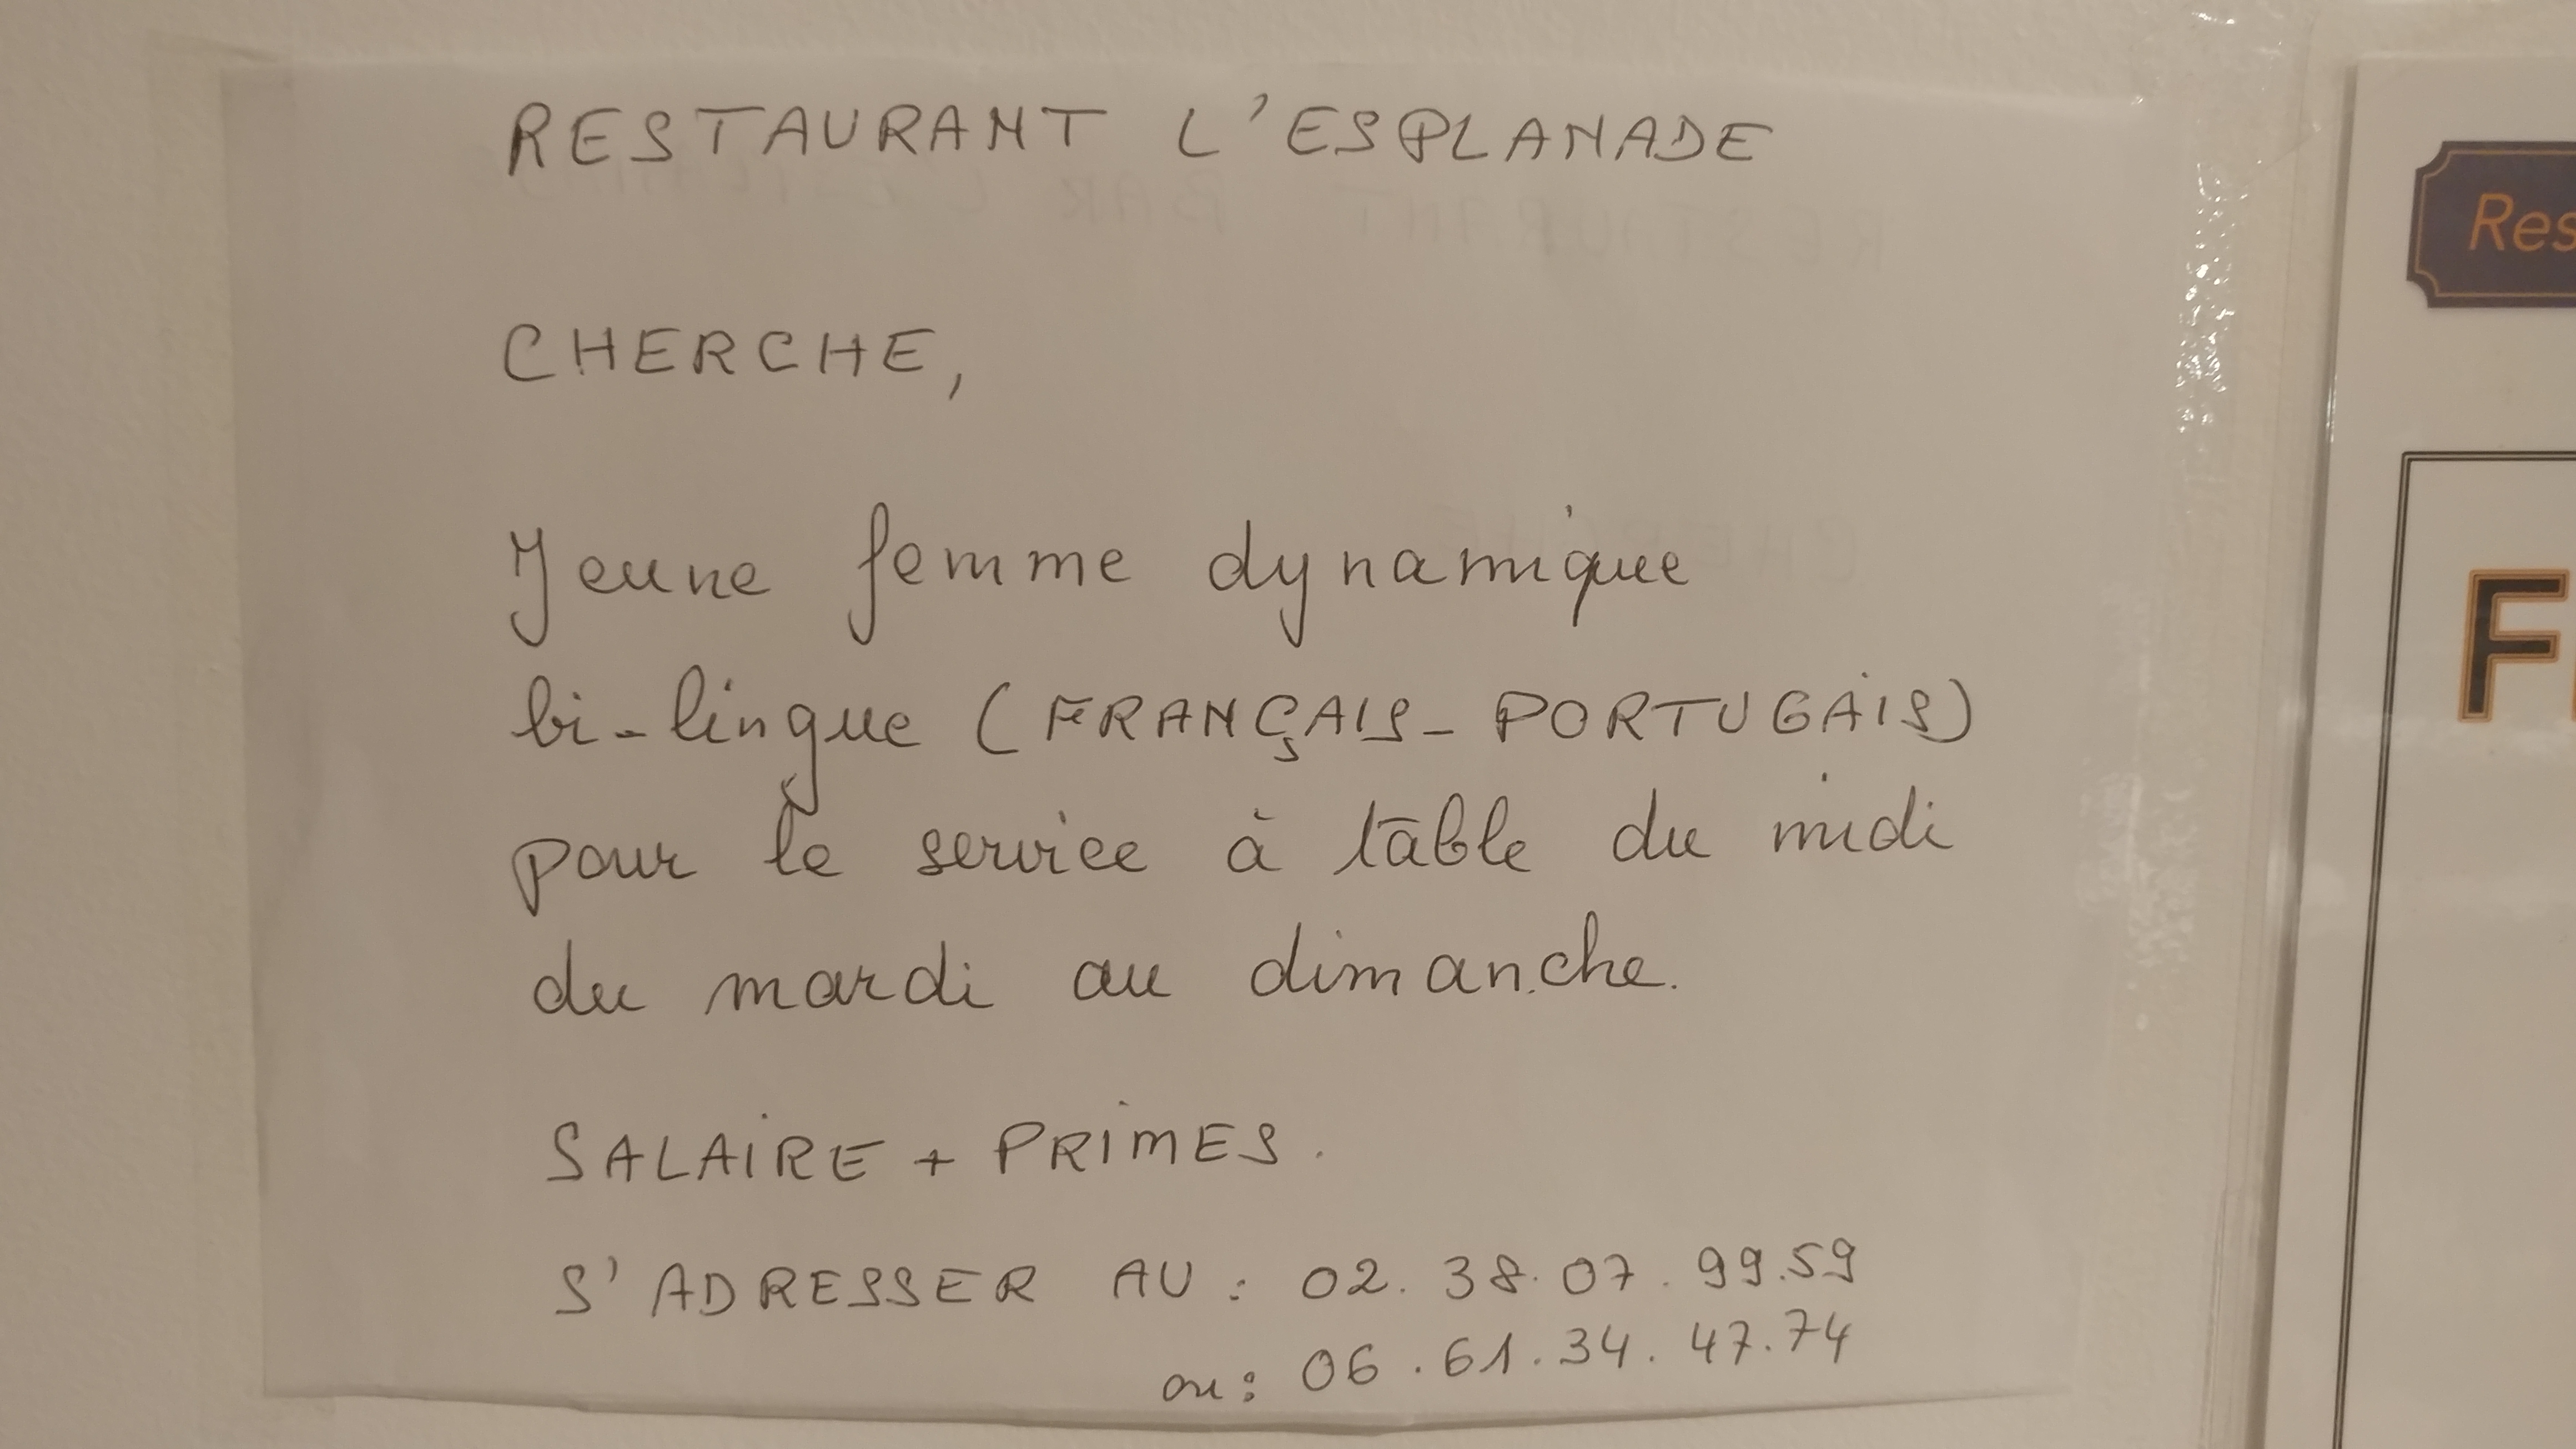 RESTAURANT L'ESPLANADE
CHERCHE,
Jeune femme dynamique
bi-lingue (FRANÇAIS-PORTUGAIS)
pour le service à table du midi
du mardi au dimanche.
SALAIRE + PRIMES.
S'ADRESSER AU : 02.38.07.99.59
ou : 06.61.34.47.74
Res
F